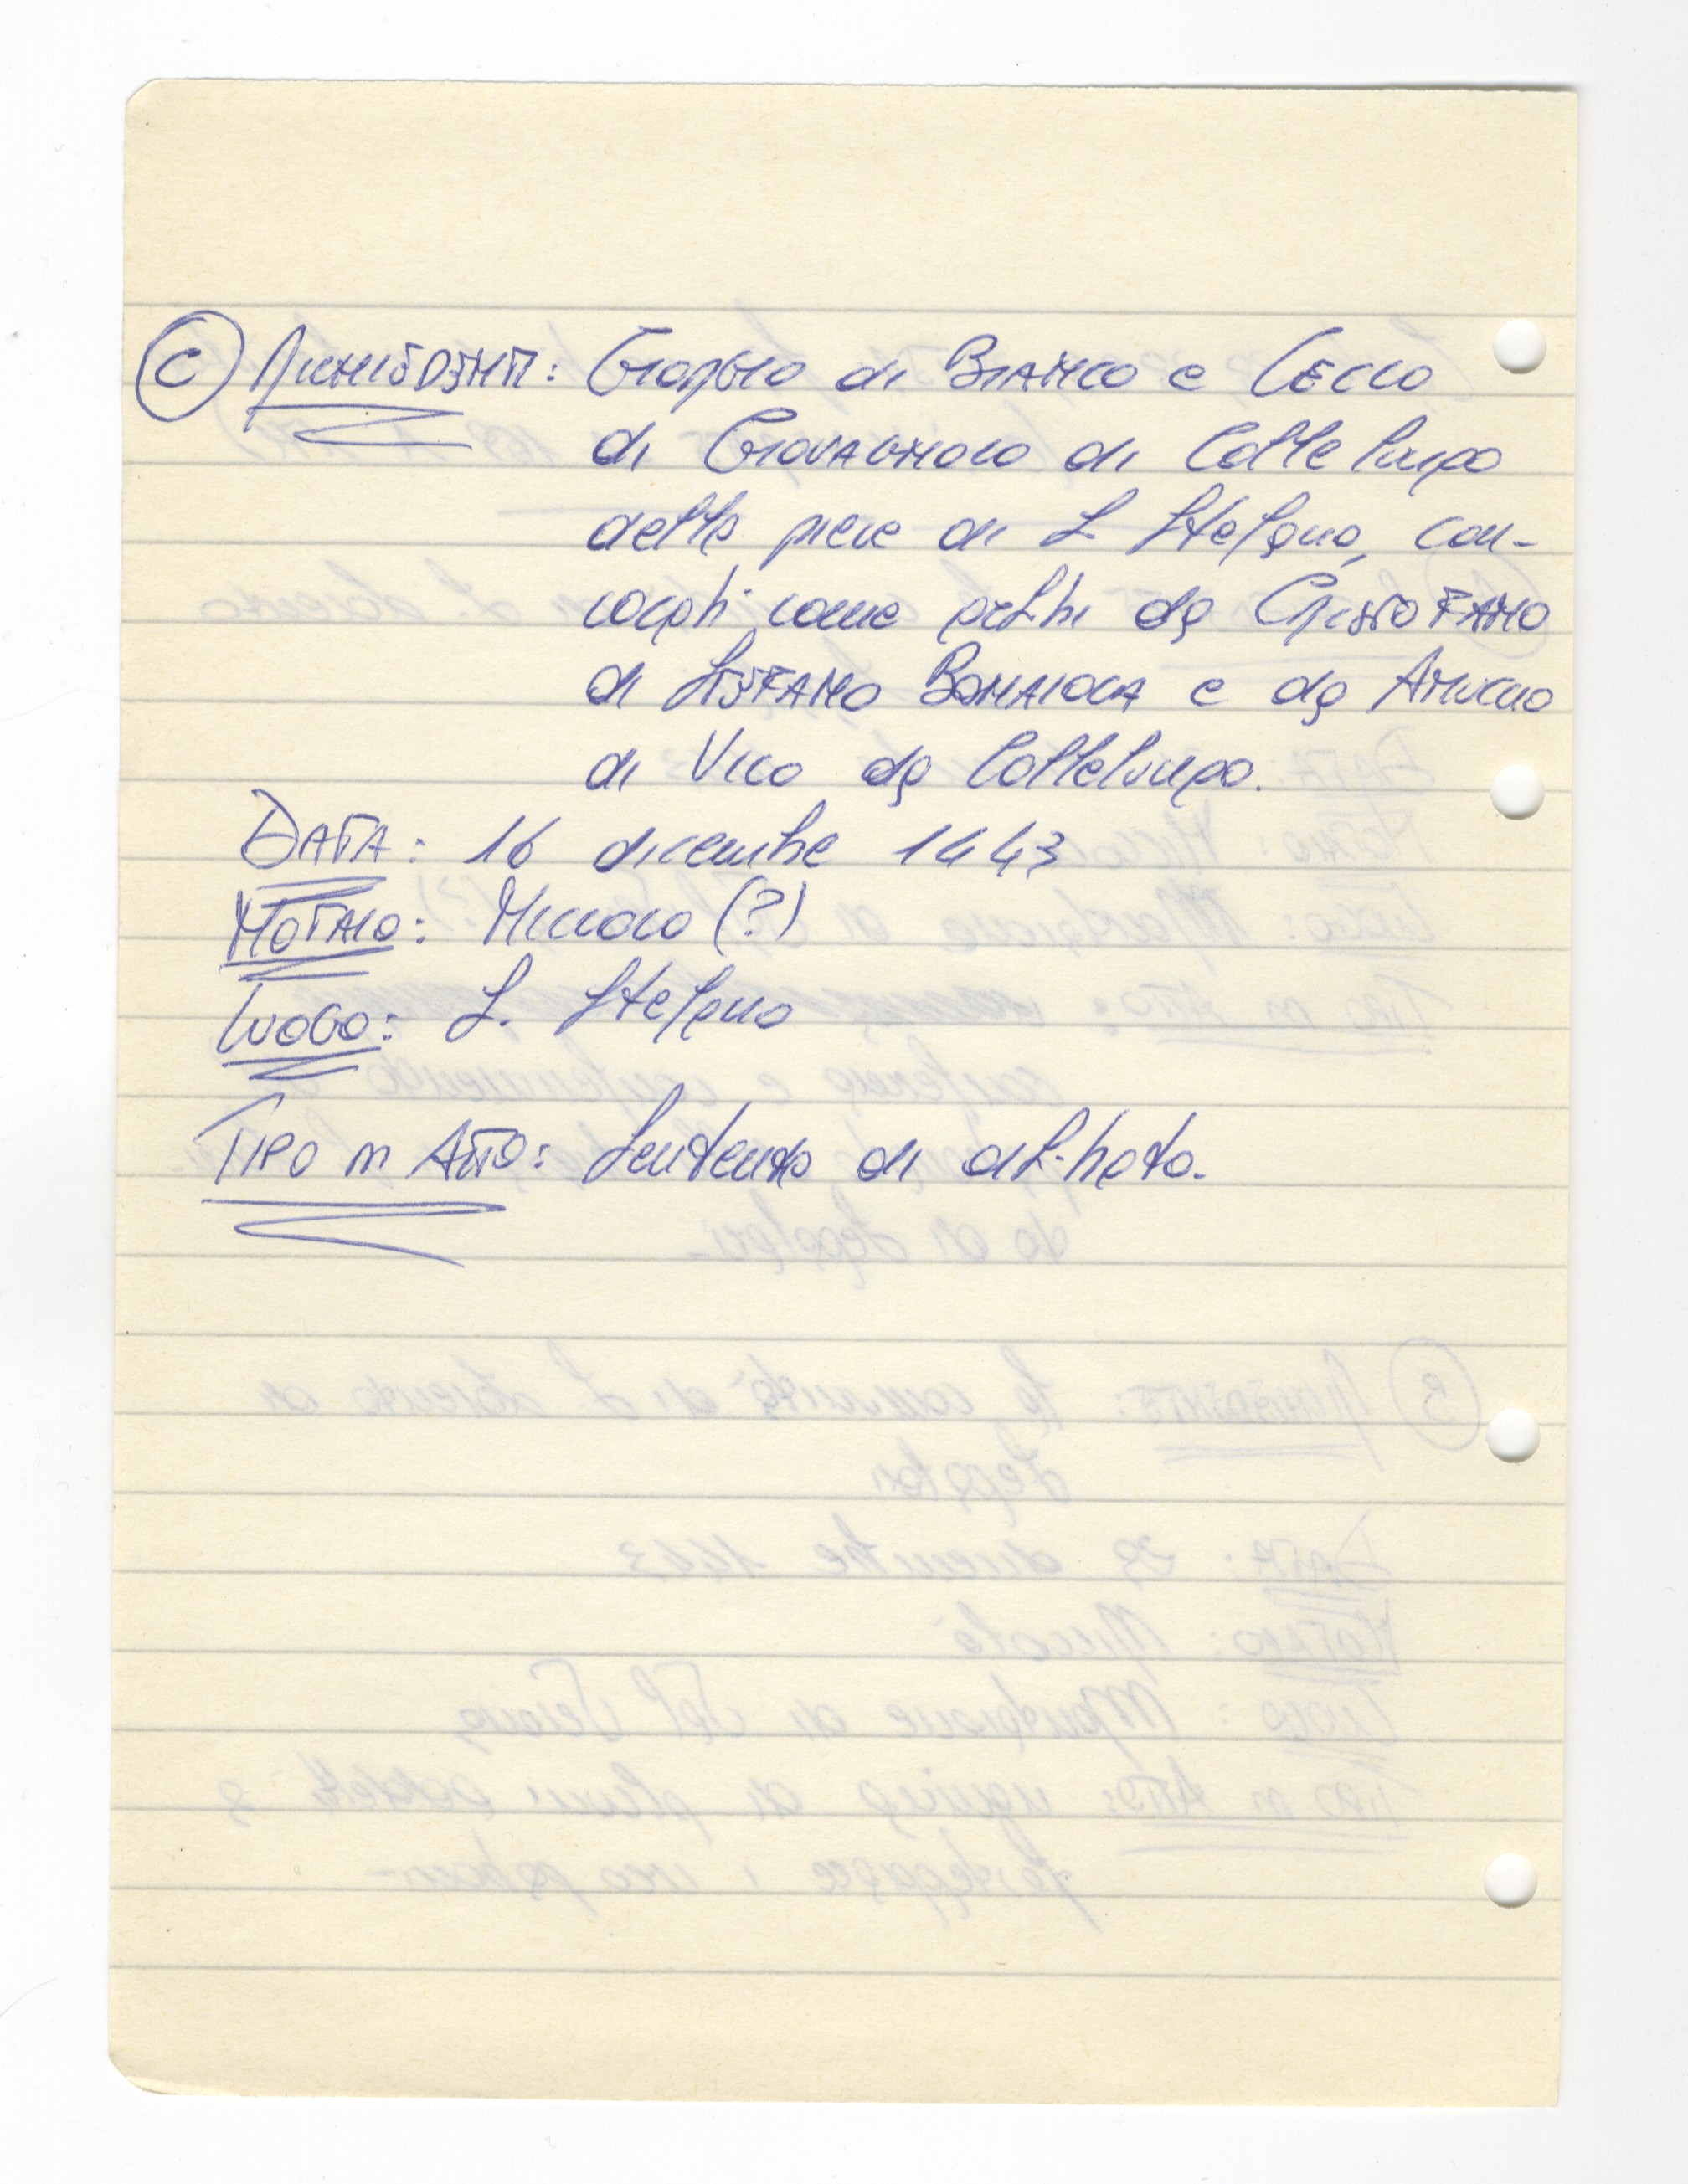 C RICHIEDENTI: GIORGIO di BIANCO e CECCO
di GIOVAGNOLO di Collelungo
della pieve di S. Stefano, con-
vocati come arbitri da CRISTOFANO
di STEFANO e da
di VICO da Collelungo.
DATA: 16 dicembre 1443
NOTAIO: NICCOLO (?)
LUOGO: S. Stefano
TIPO DI ATTO: Sentenza di arbitrato.